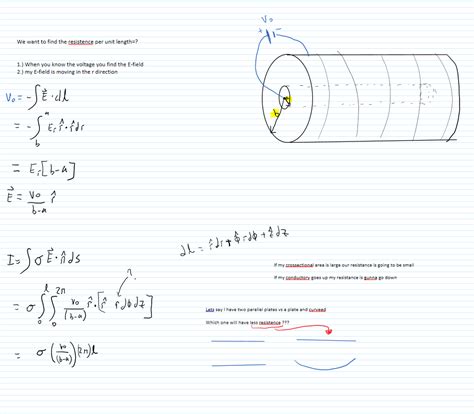 We want to find the resistence per unit length=?
1.) When you know the voltage you find the E-field
2.) my E-field is moving in the r direction
V₀ = -∫E⃗·dl
= -∫_b^a E_r r̂·r̂dr
= E_r[b-a]
E⃗ = V₀/(b-a) r̂
I = ∫σE⃗·n̂ds
= σ∫_0^l∫_0^{2π} V₀/(b-a) r̂·[r̂ r dϕ dz]
?
= σ(V₀/(b-a))(2π)l
V₀
+ -
a
b
dl = r̂dr + ϕ̂rdϕ + ẑdz
If my crossectional area is large our resistance is going to be small
If my conductiory goes up my resistance is gunna go down
Lets say I have two parallel plates vs a plate and curveed
Which one will have less resistence ???